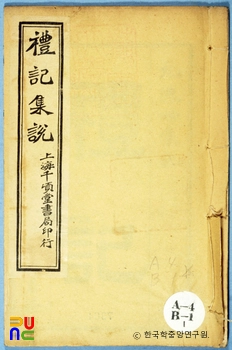 禮記集說
上海千頃堂書局印行
A-4
B-1
1
PUNC
ⓒ 한국학중앙연구원.